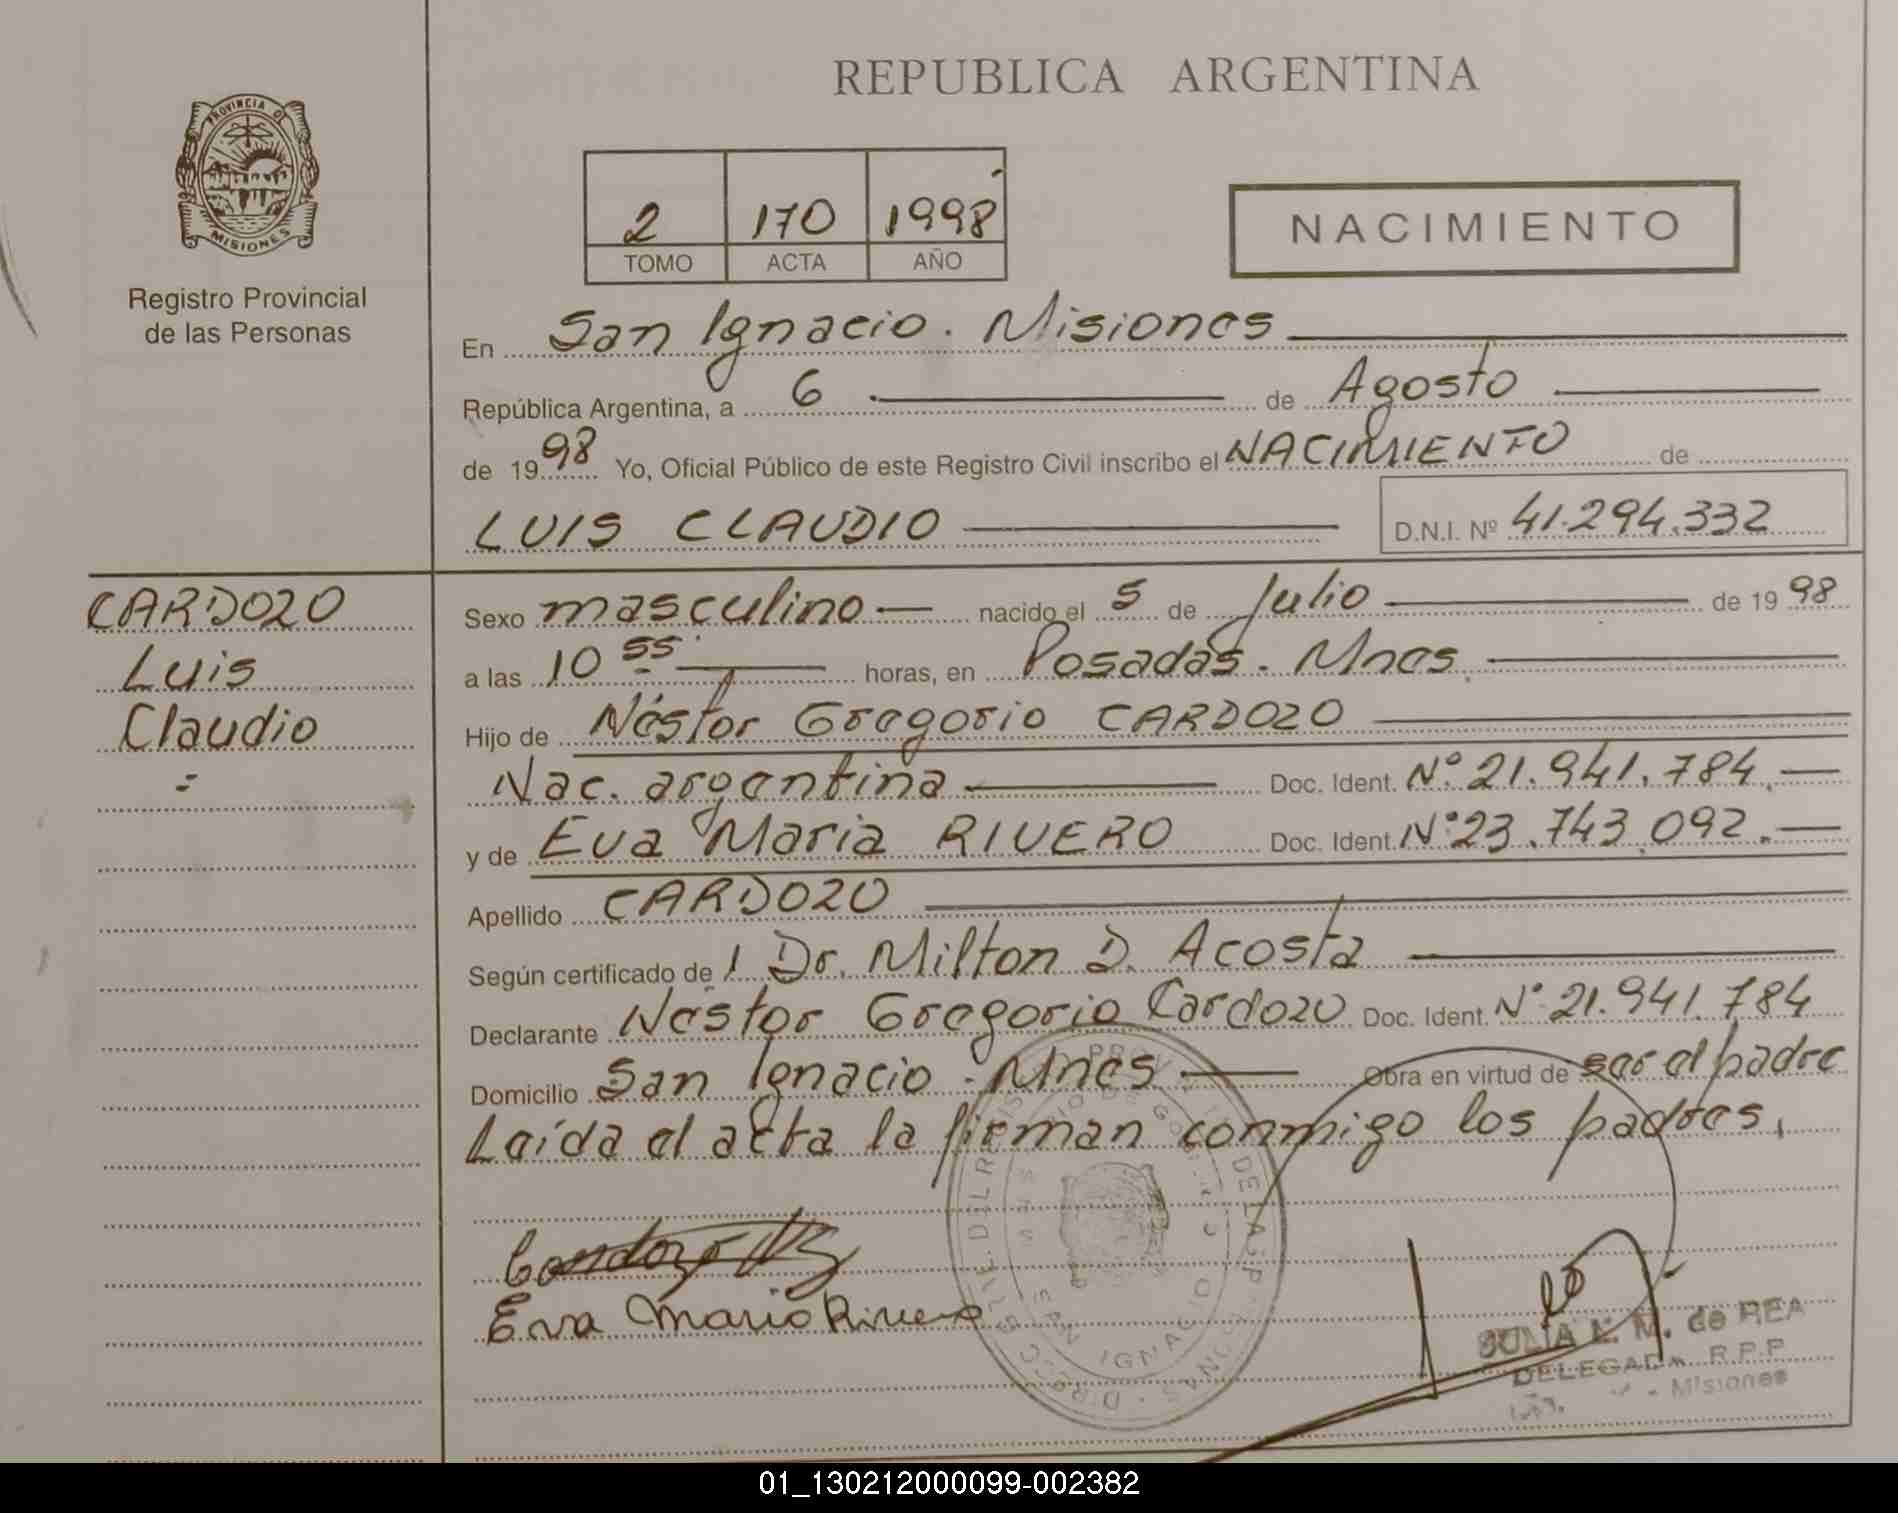 REPUBLICA ARGENTINA
PROVINCIA DE
MISIONES
Registro Provincial
de las Personas
2 170 1998
TOMO ACTA AÑO
NACIMIENTO
En San Ignacio. Misiones
República Argentina, a 6 de Agosto
de 1998 Yo, Oficial Público de este Registro Civil inscribo el NACIMIENTO de
LUIS CLAUDIO D.N.I. Nº 41.294.332
CARDOZO
Luis
Claudio
Sexo masculino nacido el 5 de Julio de 1998
a las 10 55 horas, en Posadas. Mnes.
Hijo de Néstor Gregorio CARDOZO
Nac. argentina Doc. Ident. Nº 21.941.784.
y de Eva Maria RIVERO Doc. Ident. Nº 23.743.092.
Apellido CARDOZO
Según certificado de / Dr. Milton D. Acosta
Declarante Néstor Gregorio Cardozo Doc. Ident. Nº 21.941.784
Domicilio San Ignacio. Mnes Obra en virtud de ser el padre
Leída el acta la firman conmigo los padres.
Cardozo
Eva Maria Rivero
SAN IGNACIO
JULIA L. M. de REA
DELEGADA R.P.P.
Misiones
01_130212000099-002382